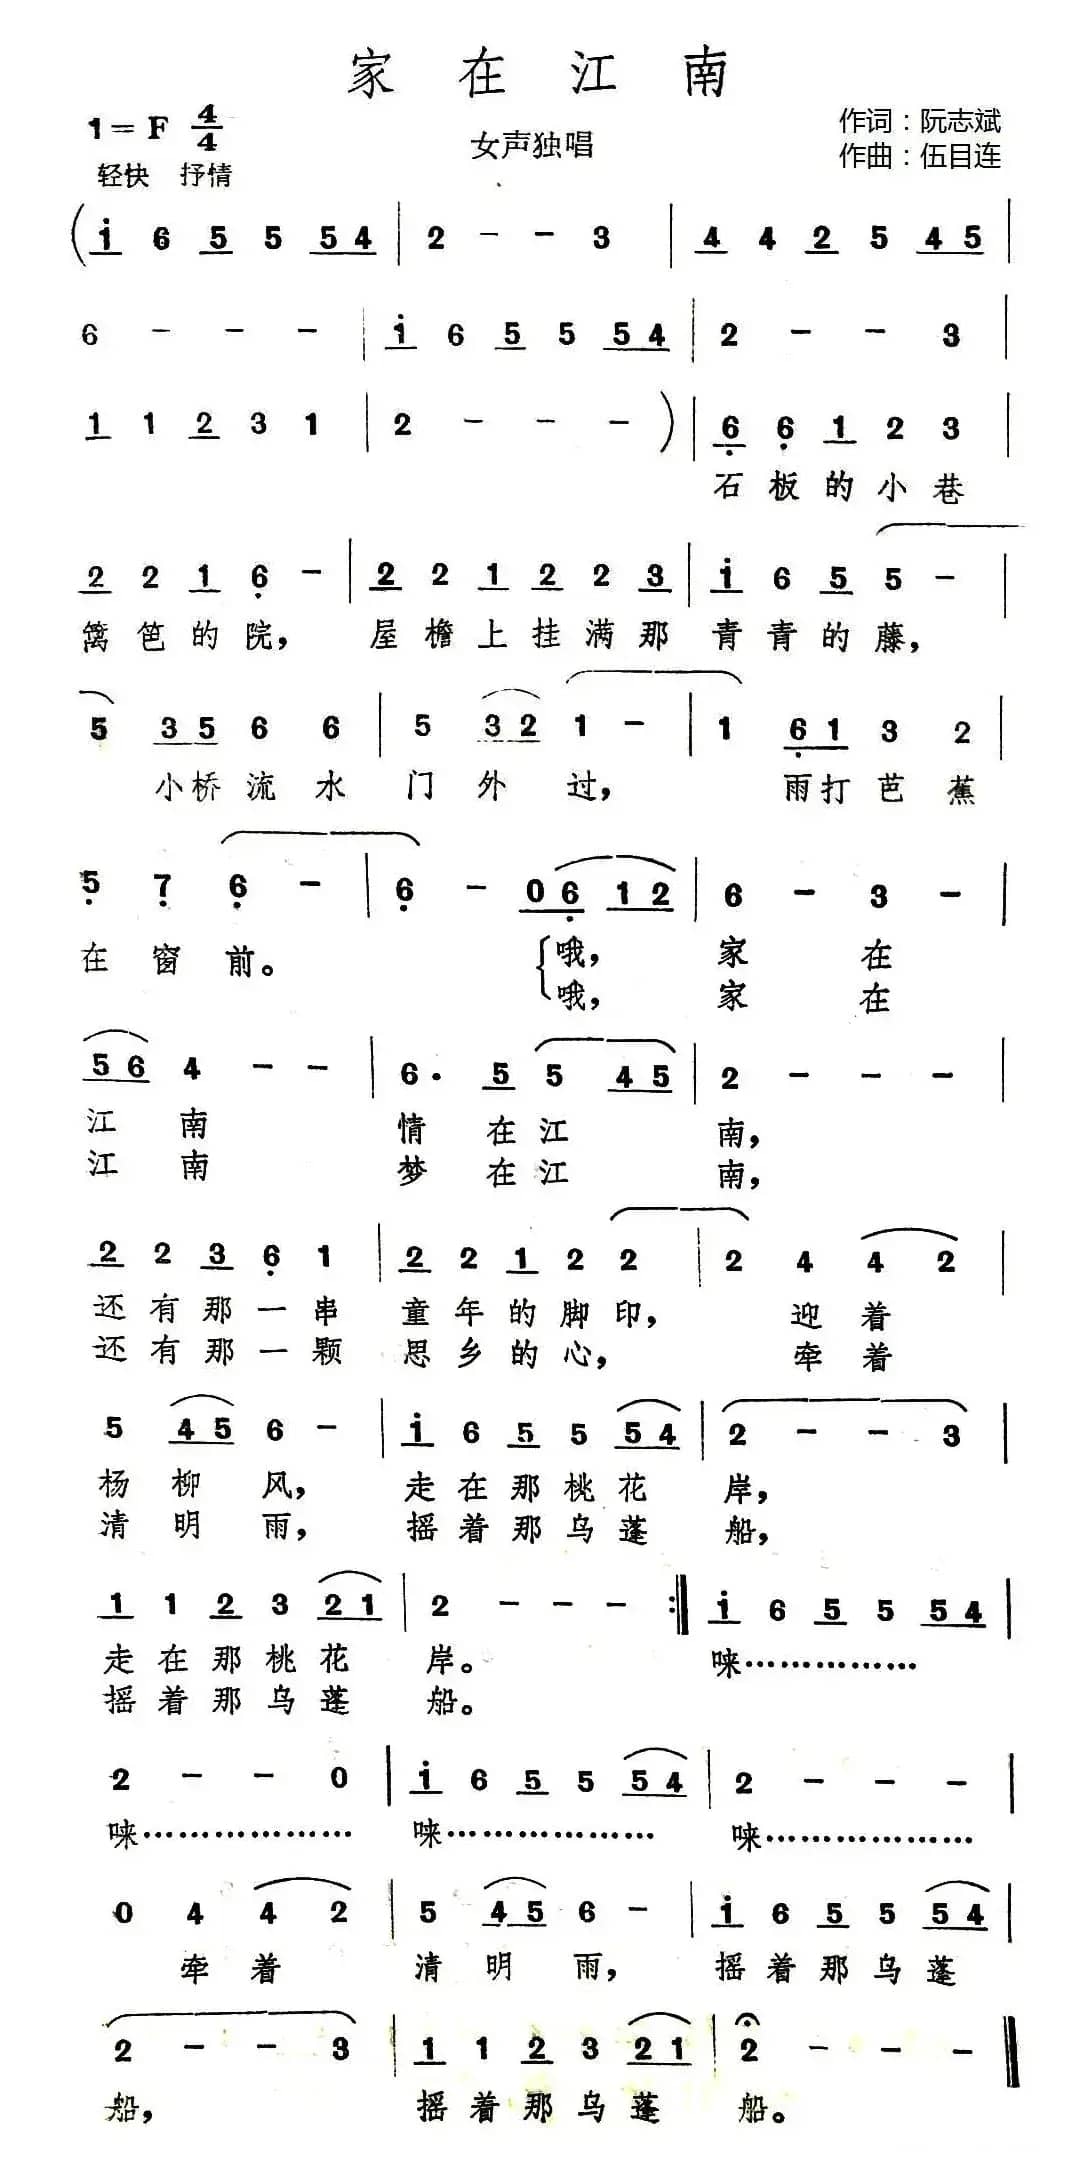 家 在 江 南
1=F 4/4
女声独唱
作词：阮志斌
轻快 抒情
作曲：伍目连
( i 6 5 5 5 4 | 2 - - 3 | 4 4 2 5 4 5 |
6 - - - | i 6 5 5 5 4 | 2 - - 3 |
1 1 2 3 1 | 2 - - - ) | 6 6 1 2 3
石 板 的 小 巷
2 2 1 6 - | 2 2 1 2 2 3 | i 6 5 5 - |
篱 笆 的 院， 屋 檐 上 挂 满 那 青 青 的 藤，
5 3 5 6 6 | 5 3 2 1 - | 1 6 1 3 2 |
小 桥 流 水 门 外 过， 雨 打 芭 蕉
5 7 6 - | 6 - 0 6 1 2 | 6 - 3 - |
在 窗 前。 哦， 家 在
哦， 家 在
5 6 4 - - | 6 · 5 5 4 5 | 2 - - - |
江 南 情 在 江 南，
江 南 梦 在 江 南，
2 2 3 6 1 | 2 2 1 2 2 | 2 4 4 2 |
还 有 那 一 串 童 年 的 脚 印， 迎 着
还 有 那 一 颗 思 乡 的 心， 牵 着
5 4 5 6 - | i 6 5 5 5 4 | 2 - - 3 |
杨 柳 风， 走 在 那 桃 花 岸，
清 明 雨， 摇 着 那 乌 蓬 船，
1 1 2 3 2 1 | 2 - - - :‖ i 6 5 5 5 4 |
走 在 那 桃 花 岸。 唻………………
摇 着 那 乌 蓬 船。
2 - - 0 | i 6 5 5 5 4 | 2 - - - |
唻………………… 唻………………… 唻…………………
0 4 4 2 | 5 4 5 6 - | i 6 5 5 5 4 |
牵 着 清 明 雨， 摇 着 那 乌 蓬
2 - - 3 | 1 1 2 3 2 1 | 2 - - - ‖
船， 摇 着 那 乌 蓬 船。